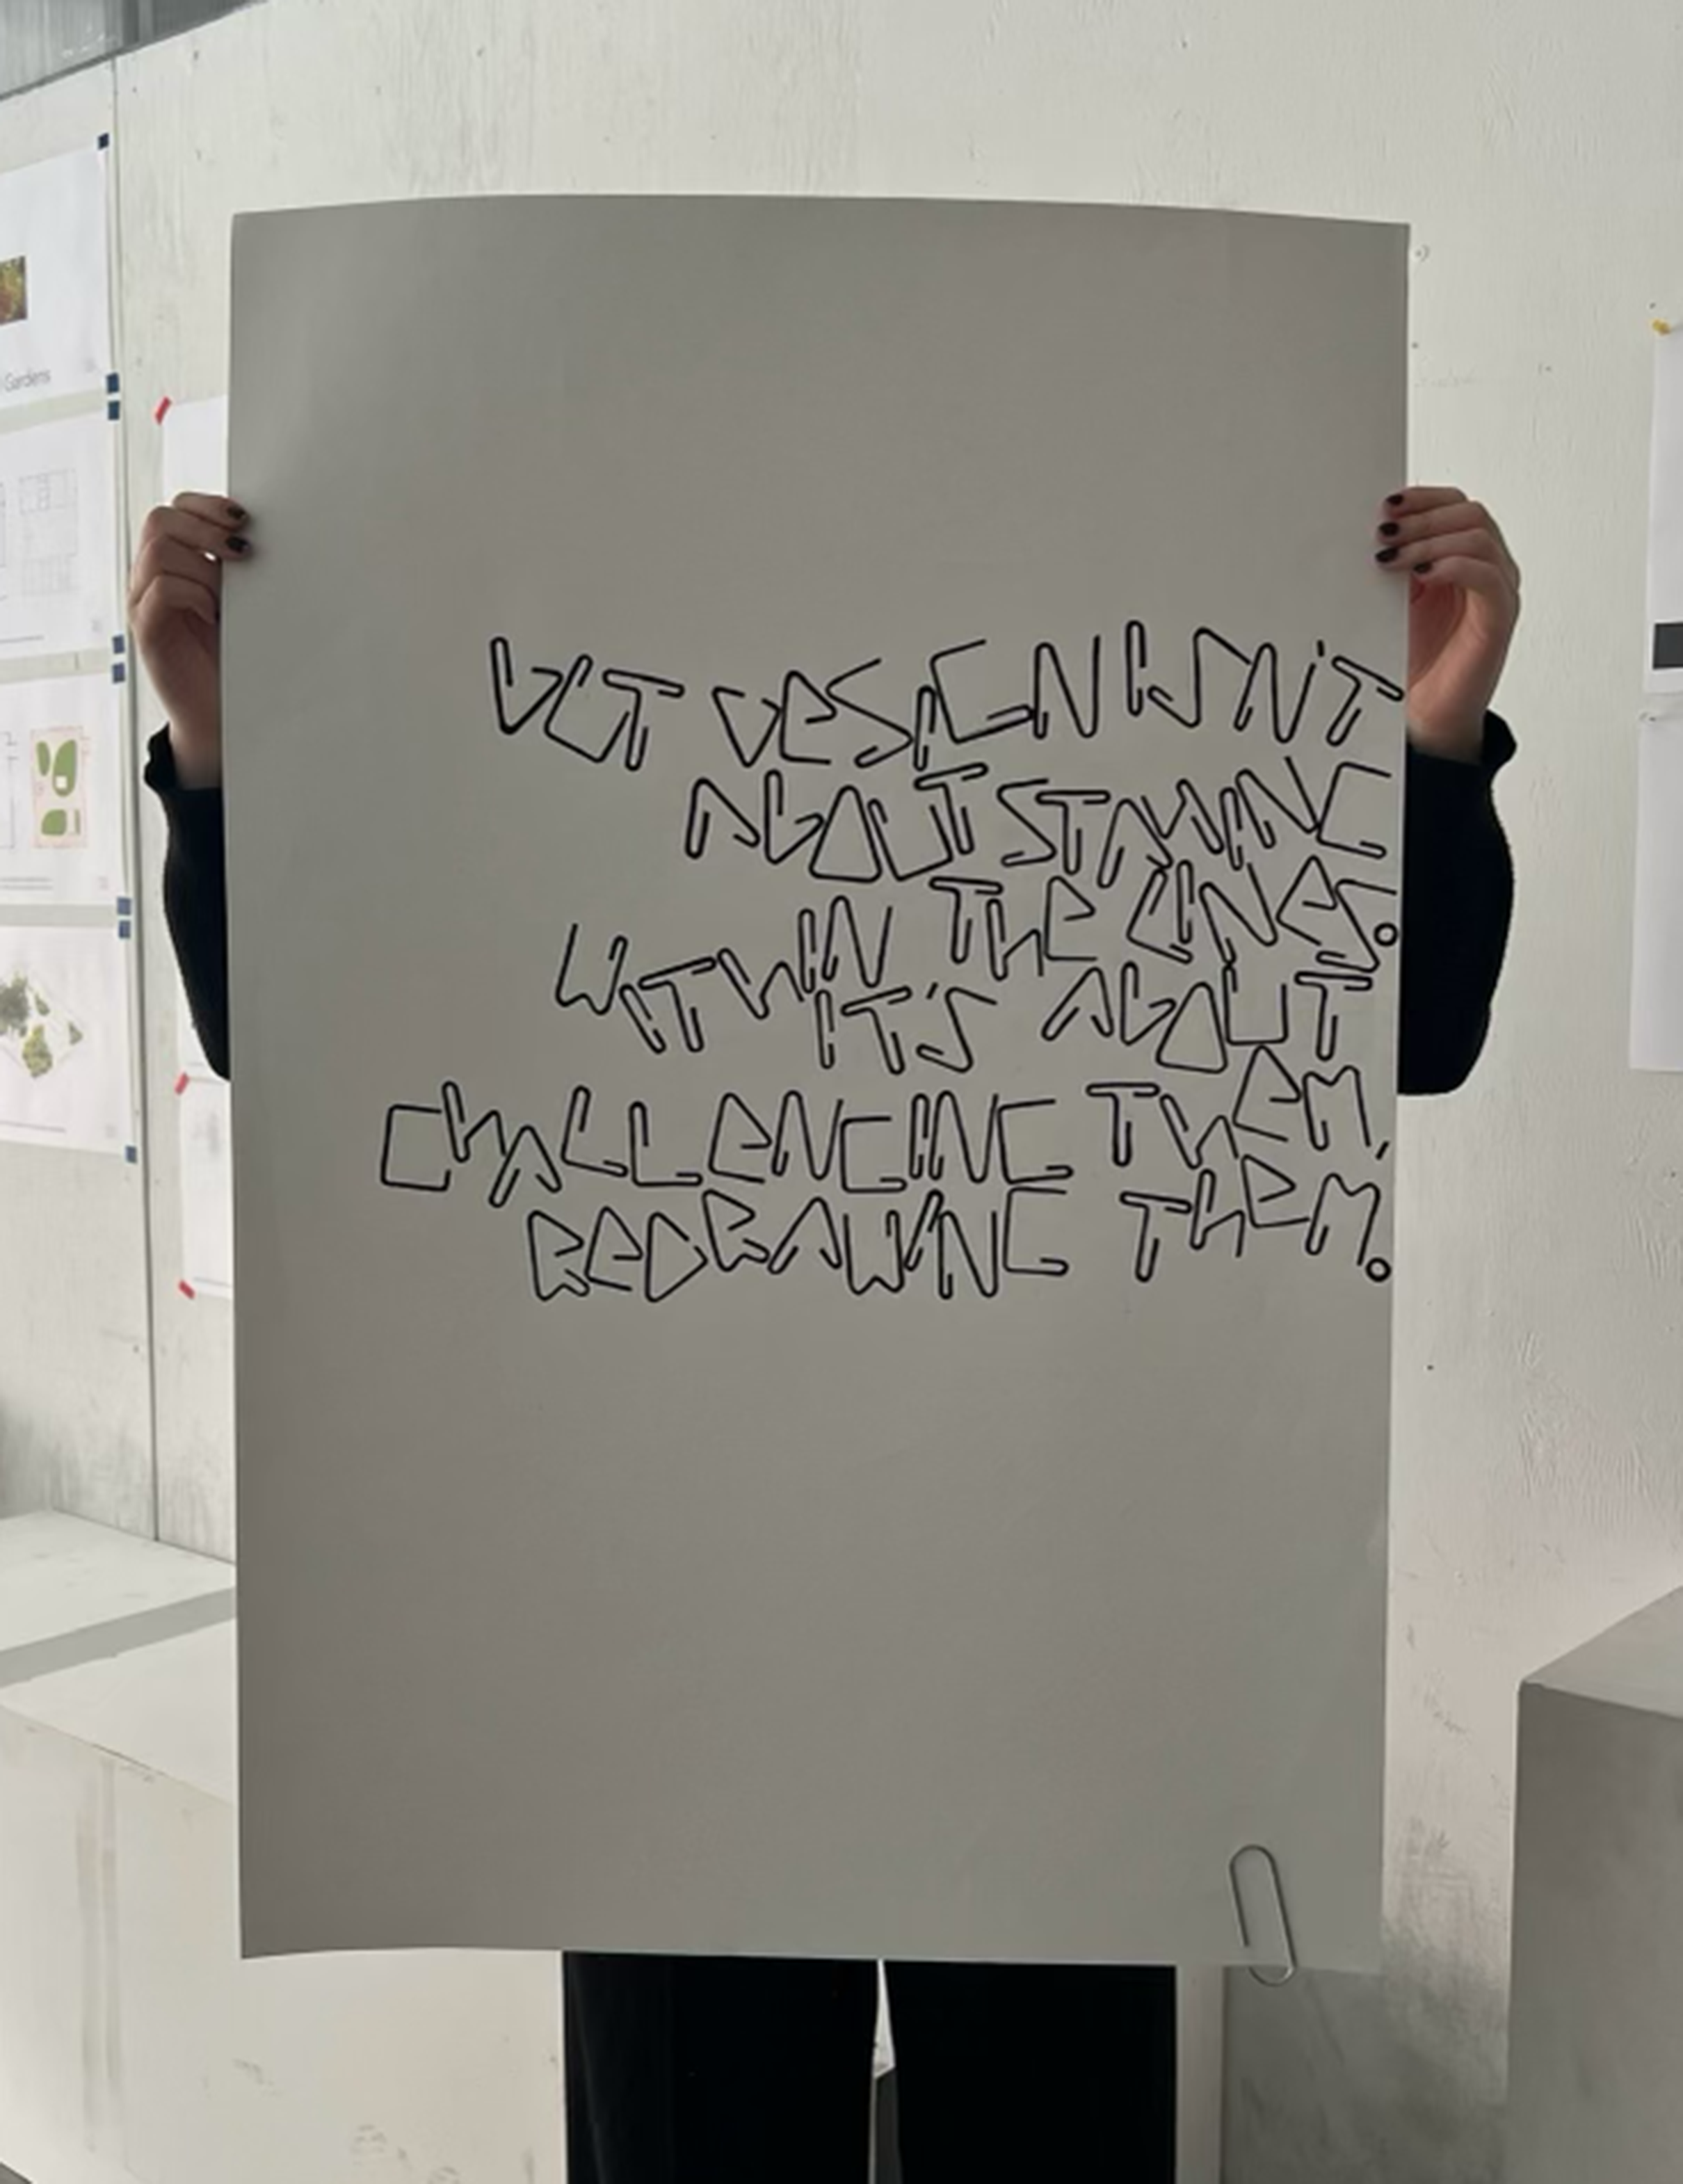 Gardens
BUT DESIGN ISN'T
ABOUT STAYING
WITHIN THE LINES.
IT'S ABOUT
CHALLENGING THEM,
REDRAWING THEM.